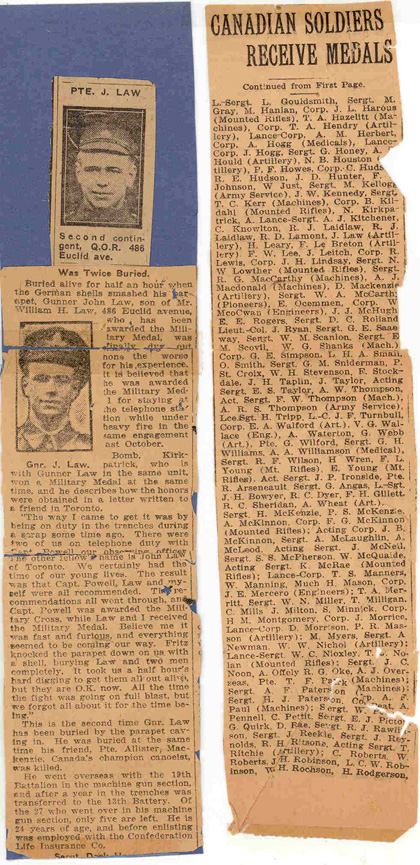 PTE. J. LAW
Second contin-
gent, Q.O.R. 486
Euclid ave.
Was Twice Buried.
Buried alive for half an hour when
the German shells smashed his par-
apet, Gunner John Law, son of Mr.
William H. Law, 486 Euclid avenue,
who has been
awarded the Mili-
tary Medal, was
finally dug out
none the worse
for his experience.
It is believed that
he was awarded
the Military Med-
al for staying at
the telephone sta-
tion while under
heavy fire in the
same engagement
last October.
Gnr. J. Law.
Bomb. Kirk-
patrick, who is
with Gunner Law in the same unit,
won a Military Medal at the same
time, and he describes how the honors
were obtained in a letter written to
a friend in Toronto.
"The way I came to get it was by
being on duty in the trenches during
a scrap some time ago. There were
two of us on telephone duty with
Capt. Powell our observing officer
The other fellow's name is John Law
of Toronto. We certainly had the
time of our young lives. The result
was that Capt. Powell, Law and my-
self were all recommended. The
commendations all went through, and
Capt. Powell was awarded the Mili-
tary Cross, while Law and I received
the Military Medal. Believe me it
was fast and furious, and everything
seemed to be coming our way. Fritz
knocked the parapet down on us with
a shell, burying Law and two men
completely. It took us a half hour's
hard digging to get them all out alive,
but they are O.K. now. All the time
the fight was going on full blast, but
we forgot all about it for the time be-
ing."
This is the second time Gnr. Law
has been buried by the parapet cav-
ing in. He was buried at the same
time his friend, Pte. Allister, Mac-
kenzie, Canada's champion canoeist,
was killed.
He went overseas with the 19th
Battalion in the machine gun section,
and after a year in the trenches was
transferred to the 13th Battery. Of
the 27 who went over in his machine
gun section, only five are left. He is
24 years of age, and before enlisting
was employed with the Confederation
Life Insurance Co.
CANADIAN SOLDIERS
RECEIVE MEDALS
Continued from First Page.
L.-Sergt. L. Gouldsmith, Sergt. M.
Gray, M. Hanlan, Corp. J. L. Harous
(Mounted Rifles), T. A. Hazelitt (Ma-
chines), Corp. T. A. Hendry (Artil-
lery), Lance-Corp. A. M. Herbert,
Corp. A. Hogg (Medicals), Lance-
Corp. J. Hogg, Sergt. G. Honey, A.
Hould (Artillery), N. B. Houston
tillery), P. F. Howes, Corp. C. Huds
R. E. Hudson, J. D. Hunter, F.
Johnson, W Just, Sergt. M. Kellog
(Army Service), J. W. Kennedy, Sergt.
T. C. Kerr (Machines), Corp. B. Kil-
dahl (Mounted Rifles), N. Kirkpa-
trick, A. Lance-Sergt. A. J. Kitchener,
C. Knowlton, R. J. Laidlaw, R. J.
Laidlaw, R. D. Lamont, J. Law (Artil-
lery), H. Leary, F. Le Breton (Artil-
lery), F. W. Lee, J. Leitch, Corp. R.
Lewis, Corp. J. H. Lindsay, Sergt. N.
W Lowther (Mounted Rifles), Sergt.
R. G. MacCarthy (Machines), A. J.
Macdonald (Machines), D. Mackenzie
(Artillery), Sergt. W. A. McCarthy
(Pioneers), E. Coemmen, Corp. W
McoCwan (Engineers), J. J. McHugh
E. E. Rogers, Sergt. D. C. Roland
Lieut.-Col. J. Ryan, Sergt. G. E. Saaa
way, Sergt. W. M. Scanlon, Sergt. E
M. Scovil, W. G. Shanks (Mach.)
Corp. G. E. Simpson, L. H. A. Small,
O. Smith, Sergt. G. M. Sniderman, P.
St. Croix, W H. Stevenson, F. Stock-
dale, J. H. Taplin, J. Taylor, Acting
Sergt. E. S. Taylor, A. W. Thompson,
Act. Sergt. F. W. Thompson (Mach.),
A. R. S. Thompson (Army Service),
Lce.Sgt. H. Tripp, L.-C. J. F. Turnbull,
Corp. E. A. Walford (Art.), V. G. Wal-
lace (Eng.), A. Waterton, G. Webb
(Art.), Pte. G. Wilford, Sergt. G. H.
Williams, A. A. Williamson (Medical),
Sergt. R. F. Wilson, H Wren, F. L.
Young (Mt. Rifles), E. Young (Mt.
Rifles), Act. Sergt. J. P. Ironside, Pte.
R. Arseneault, Sergt. G. Angas, L.-Sgt.
J. H. Bowyer, R C. Dyer, F. H. Gillett
R. C. Sheridan, A. Wheat (Art.)
Sergt. H. McKenzie, P. S. McKenzie,
A. McKinnon, Corp. F. G. McKinnon
(Mounted Rifles); Acting Corp. J. B.
McKinnon, Sergt. A. McLaughlin, A.
McLeod, Acting Sergt. J. McNeil,
Sergt. S. S. McPherson, W. McQuaide,
Acting Sergt. K. McRae (Mounted
Rifles); Lance-Corp. T. S. Manners,
W. Manning, Much H. Mason, Corp.
J. E. Mercero (Engineers); T. A. Mer-
ritt, Sergt. W. N. Miller, T. Milligan,
C. Mills J. Milton, S. Minnick, Corp.
H M. Montgomery, Corp. J. Morrice,
Lance-Corp. D. Morrison, P. R. Mas-
son (Artillery); M. Myers, Sergt. A.
Newman, W. W. Nichol (Artillery);
Lance-Sergt. W. C. Nioxley, T. No-
lan (Mounted Rifles); Sergt. J. C.
Noon, A. Offely R. O Oke, A. J. Over-
seas, Pte. T. F. (Machines);
Sergt. A. F. Paterson (Machines);
Sergt. R. J. Paterson, A. F.
Paul (Machines); Sergt. W. A.
Pennell, C. Pettit, Sergt. E. J. Pictor
G. Quirk, D. Rae, Sergt. R. J. Rawlin-
son, Sergt. J. Reekie, Sergt. J. Rey-
nolds, R. H. Ritsons, Acting Sergt. T.
Ritchie (Artillery); C. Roberts, W.
Roberts, J. H. Robinson, L. C. W. Rob-
inson, W. H. Rochson, H. Rodgerson,